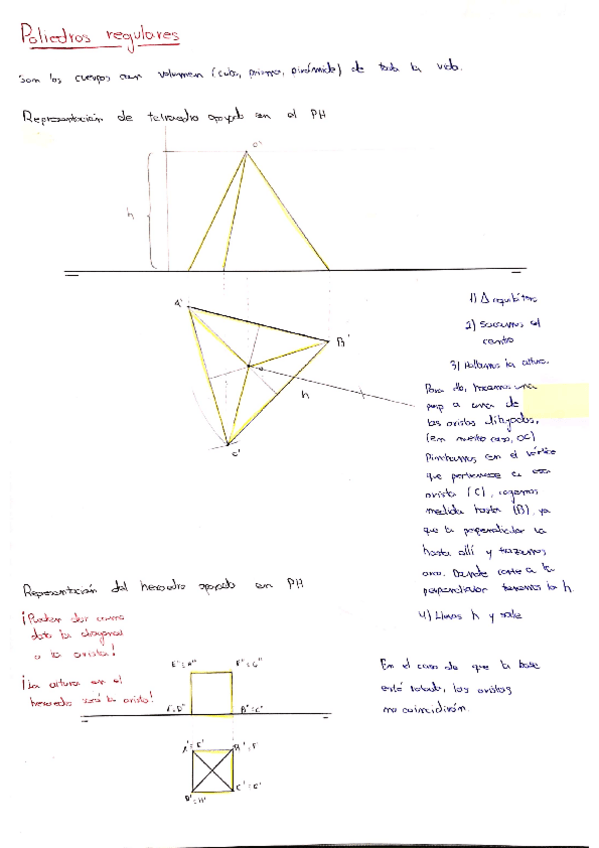 Poliedros regulares
Son los cuerpos con volumen (cubo, prisma, pirámide) de toda la vida.
Representación de tetraedro apoyado en el PH
O''
h
A'
B'
h
C'
1) Δ equilátero
2) Sacamos el
centro
3) Hallamos la altura.
Para ello, hacemos una
perp a una de
las aristas dibujadas,
(en nuestro caso, OC)
Pinchamos en el vértice
que pertenece a esa
arista (C), cogemos
medida hasta (B), ya
que la perpendicular va
hasta allí y trazamos
arco. Donde corte a la
perpendicular tenemos la h.
4) Llevas h y sale
Representación del hexaedro apoyado en PH
¡Pueden dar como
dato la diagonal
o la arista!
¡La altura en el
hexaedro será la arista!
E''=A''
F''=G''
B''=C''
En el caso de que la base
esté rotada, las aristas
no coincidirán.
A'=E'
B'=F'
C'=G'
D'=H'